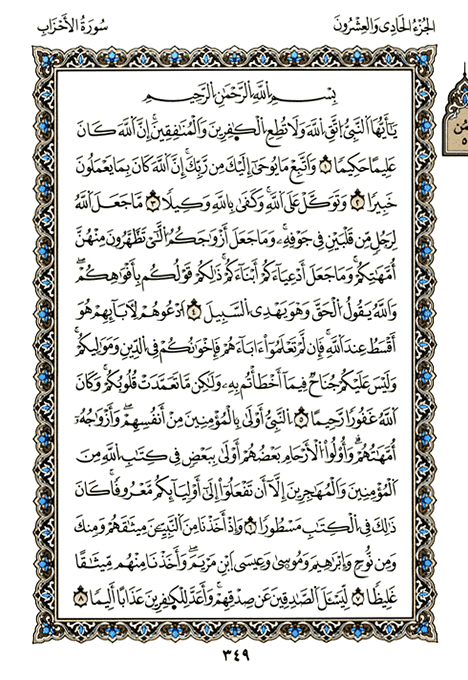 الجزء الحادي والعشرون
سورة الأحزاب
بسم الله الرحمن الرحيم
يَٰٓأَيُّهَا ٱلنَّبِىُّ ٱتَّقِ ٱللَّهَ وَلَا تُطِعِ ٱلْكَٰفِرِينَ وَٱلْمُنَٰفِقِينَ إِنَّ ٱللَّهَ كَانَ
عَلِيمًا حَكِيمًا ١ وَٱتَّبِعْ مَا يُوحَىٰٓ إِلَيْكَ مِن رَّبِّكَ إِنَّ ٱللَّهَ كَانَ بِمَا يَعْمَلُونَ
خَبِيرًا ٢ وَتَوَكَّلْ عَلَى ٱللَّهِ وَكَفَىٰ بِٱللَّهِ وَكِيلًا ٣ مَّا جَعَلَ ٱللَّهُ
لِرَجُلٍ مِّن قَلْبَيْنِ فِى جَوْفِهِۦ وَمَا جَعَلَ أَزْوَٰجَكُمُ ٱلَّٰٓـِٔى تَظَّهَّرُونَ مِنْهُنَّ
أُمَّهَٰتِكُمْ وَمَا جَعَلَ أَدْعِيَآءَكُمْ أَبْنَآءَكُمْ ذَٰلِكُمْ قَوْلُكُم بِأَفْوَٰهِكُمْ
وَٱللَّهُ يَقُولُ ٱلْحَقَّ وَهُوَ يَهْدِى ٱلسَّبِيلَ ٤ ٱدْعُوهُمْ لِأٓبَآئِهِمْ هُوَ
أَقْسَطُ عِندَ ٱللَّهِ فَإِن لَّمْ تَعْلَمُوٓا۟ ءَابَآءَهُمْ فَإِخْوَٰنُكُمْ فِى ٱلدِّينِ وَمَوَٰلِيكُمْ
وَلَيْسَ عَلَيْكُمْ جُنَاحٌ فِيمَآ أَخْطَأْتُم بِهِۦ وَلَٰكِن مَّا تَعَمَّدَتْ قُلُوبُكُمْ وَكَانَ
ٱللَّهُ غَفُورًا رَّحِيمًا ٥ ٱلنَّبِىُّ أَوْلَىٰ بِٱلْمُؤْمِنِينَ مِنْ أَنفُسِهِمْ وَأَزْوَٰجُهُۥٓ
أُمَّهَٰتُهُمْ وَأُو۟لُوا۟ ٱلْأَرْحَامِ بَعْضُهُمْ أَوْلَىٰ بِبَعْضٍ فِى كِتَٰبِ ٱللَّهِ مِنَ
ٱلْمُؤْمِنِينَ وَٱلْمُهَٰجِرِينَ إِلَّآ أَن تَفْعَلُوٓا۟ إِلَىٰٓ أَوْلِيَآئِكُم مَّعْرُوفًا كَانَ
ذَٰلِكَ فِى ٱلْكِتَٰبِ مَسْطُورًا ٦ وَإِذْ أَخَذْنَا مِنَ ٱلنَّبِيِّـۧنَ مِيثَٰقَهُمْ وَمِنكَ
وَمِن نُّوحٍ وَإِبْرَٰهِيمَ وَمُوسَىٰ وَعِيسَى ٱبْنِ مَرْيَمَ وَأَخَذْنَا مِنْهُم مِّيثَٰقًا
غَلِيظًا ٧ لِّيَسْـَٔلَ ٱلصَّٰدِقِينَ عَن صِدْقِهِمْ وَأَعَدَّ لِلْكَٰفِرِينَ عَذَابًا أَلِيمًا ٨
٣٤٩